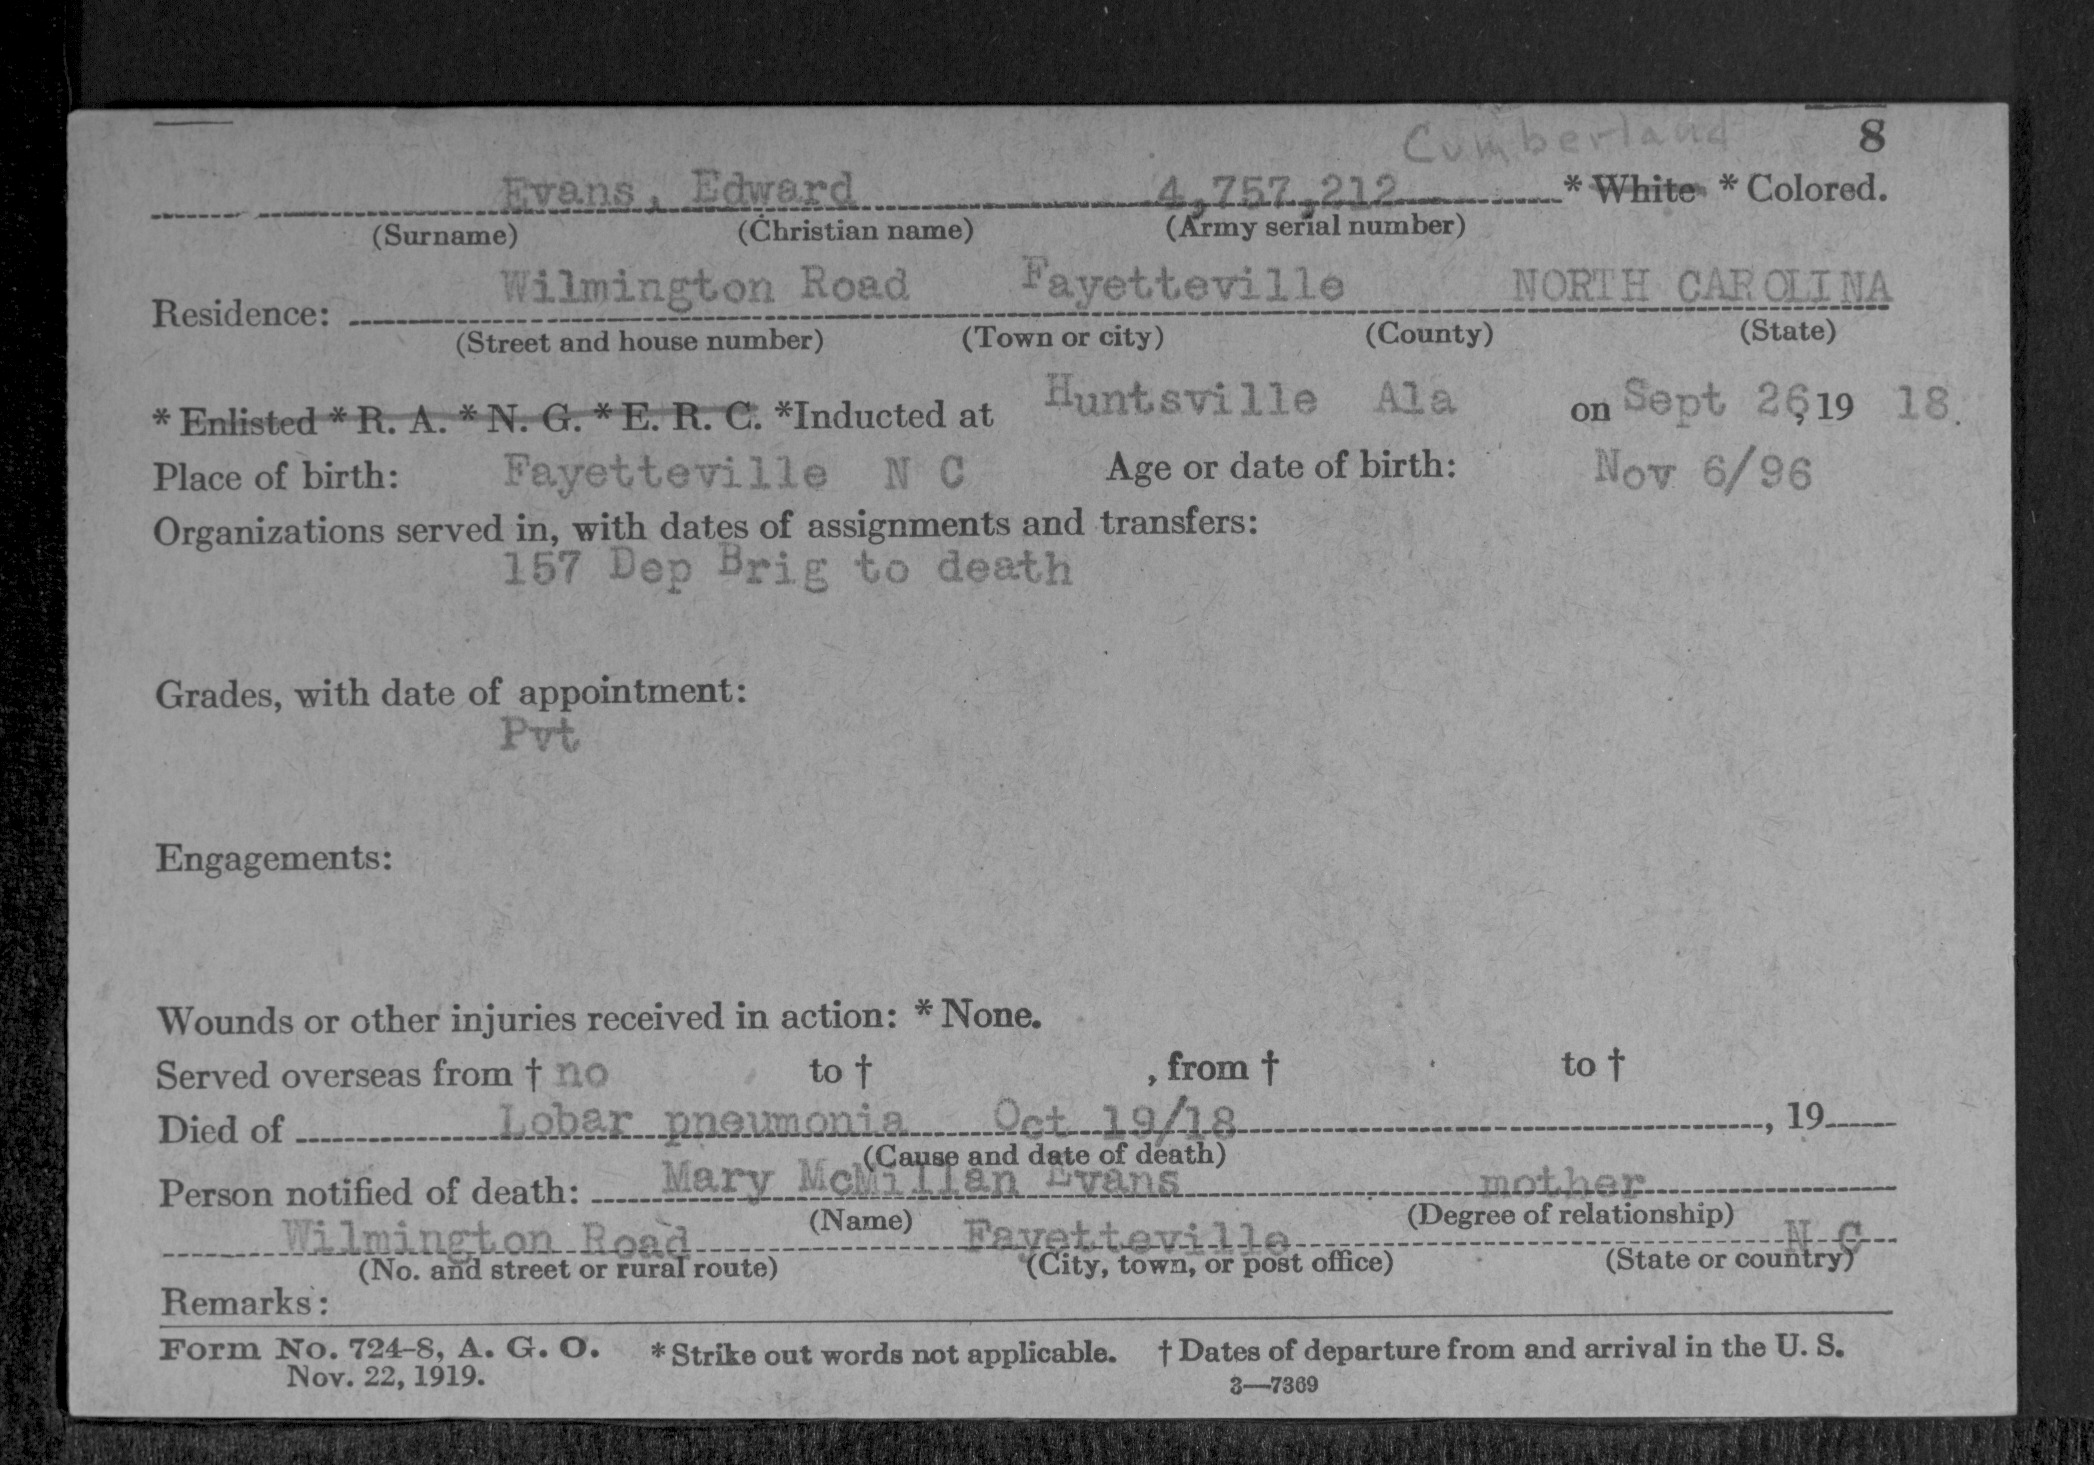 Cumberland 8
Evans, Edward 4,757,212 * White * Colored.
(Surname) (Christian name) (Army serial number)
Wilmington Road Fayetteville NORTH CAROLINA
Residence:
(Street and house number) (Town or city) (County) (State)
* Enlisted * R. A. * N. G. * E. R. C. *Inducted at Huntsville Ala on Sept 26, 19 18.
Place of birth: Fayetteville N C Age or date of birth: Nov 6/96
Organizations served in, with dates of assignments and transfers:
157 Dep Brig to death
Grades, with date of appointment:
Pvt
Engagements:
Wounds or other injuries received in action: * None.
Served overseas from † no to † , from † to †
Died of Lobar pneumonia Oct 19/18 , 19
(Cause and date of death)
Person notified of death: Mary McMillan Evans mother
(Name) (Degree of relationship)
Wilmington Road Fayetteville N C
(No. and street or rural route) (City, town, or post office) (State or country)
Remarks:
Form No. 724-8, A. G. O. * Strike out words not applicable. † Dates of departure from and arrival in the U. S.
Nov. 22, 1919. 3—7369